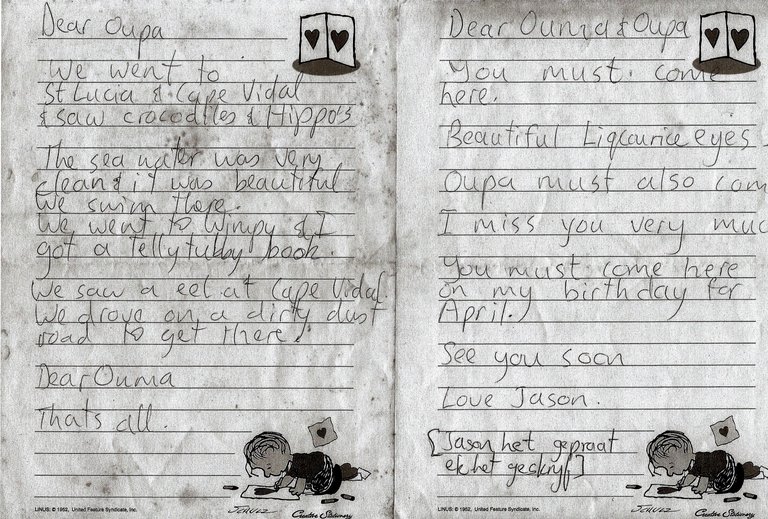 Dear Oupa
We went to
St Lucia & Cape Vidal
& saw crocodiles & Hippo's
The sea water was very
clean & it was beautiful
We swim there.
We went to Wimpy & I
got a tellytubby book.
We saw a eel at Cape Vidal.
We drove on a dirty dust
road to get there.
Dear Ouma
Thats all.
LINUS: © 1952, United Feature Syndicate, Inc.
SCHULZ
Creative Stationery
Dear Ouma & Oupa
You must come
here.
Beautiful Liqourice eyes
Oupa must also com
I miss you very muc
You must come here
on my birthday for
April.
See you soon
Love Jason.
[Jason het gepraat
ek het geskryf]
LINUS: © 1952, United Feature Syndicate, Inc.
SCHULZ
Creative Stationery